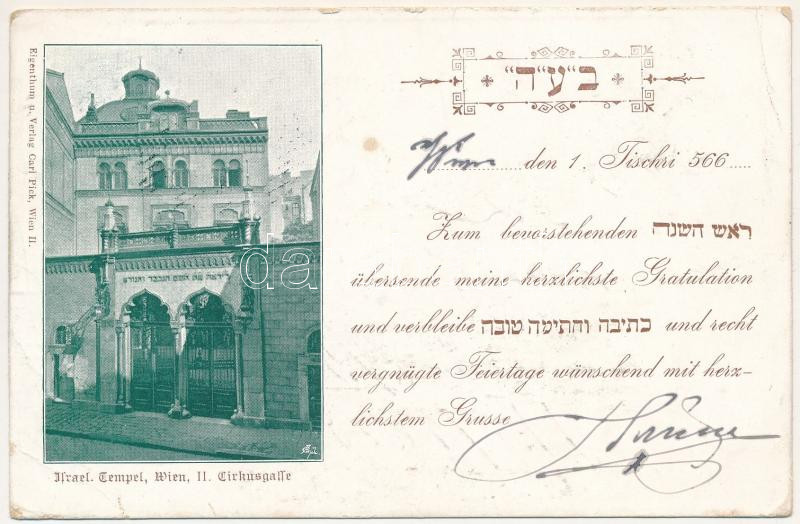 Eigenthum u. Verlag Carl Pick, Wien II.
ב"ע"ה
den 1. Tischri 566
Zum bevorstehenden ראש השנה
übersende meine herzlichste Gratulation
und verbleibe כתיבה וחתימה טובה und recht
vergnügte Feiertage wünschend mit herz-
lichstem Grusse
ליראה את השם הנכבד והנורא
da
Israel. Tempel, Wien, II. Cirkusgasse